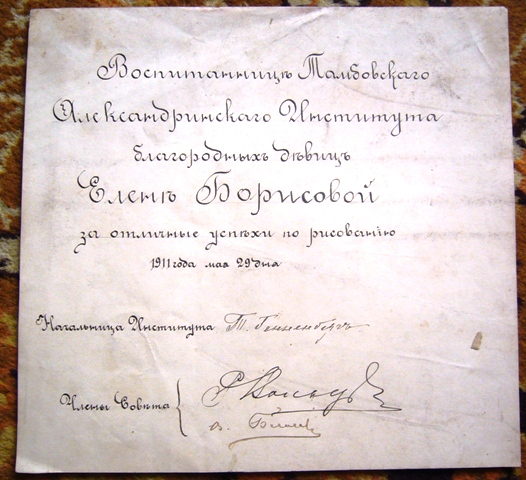 Воспитанницѣ Тамбовскаго
Александринскаго Института
благородныхъ дѣвицъ
Еленѣ Борисовой
за отличные успѣхи по рисованію
1911 года мая 29 дня
Начальница Института Т.
Члены Совѣта